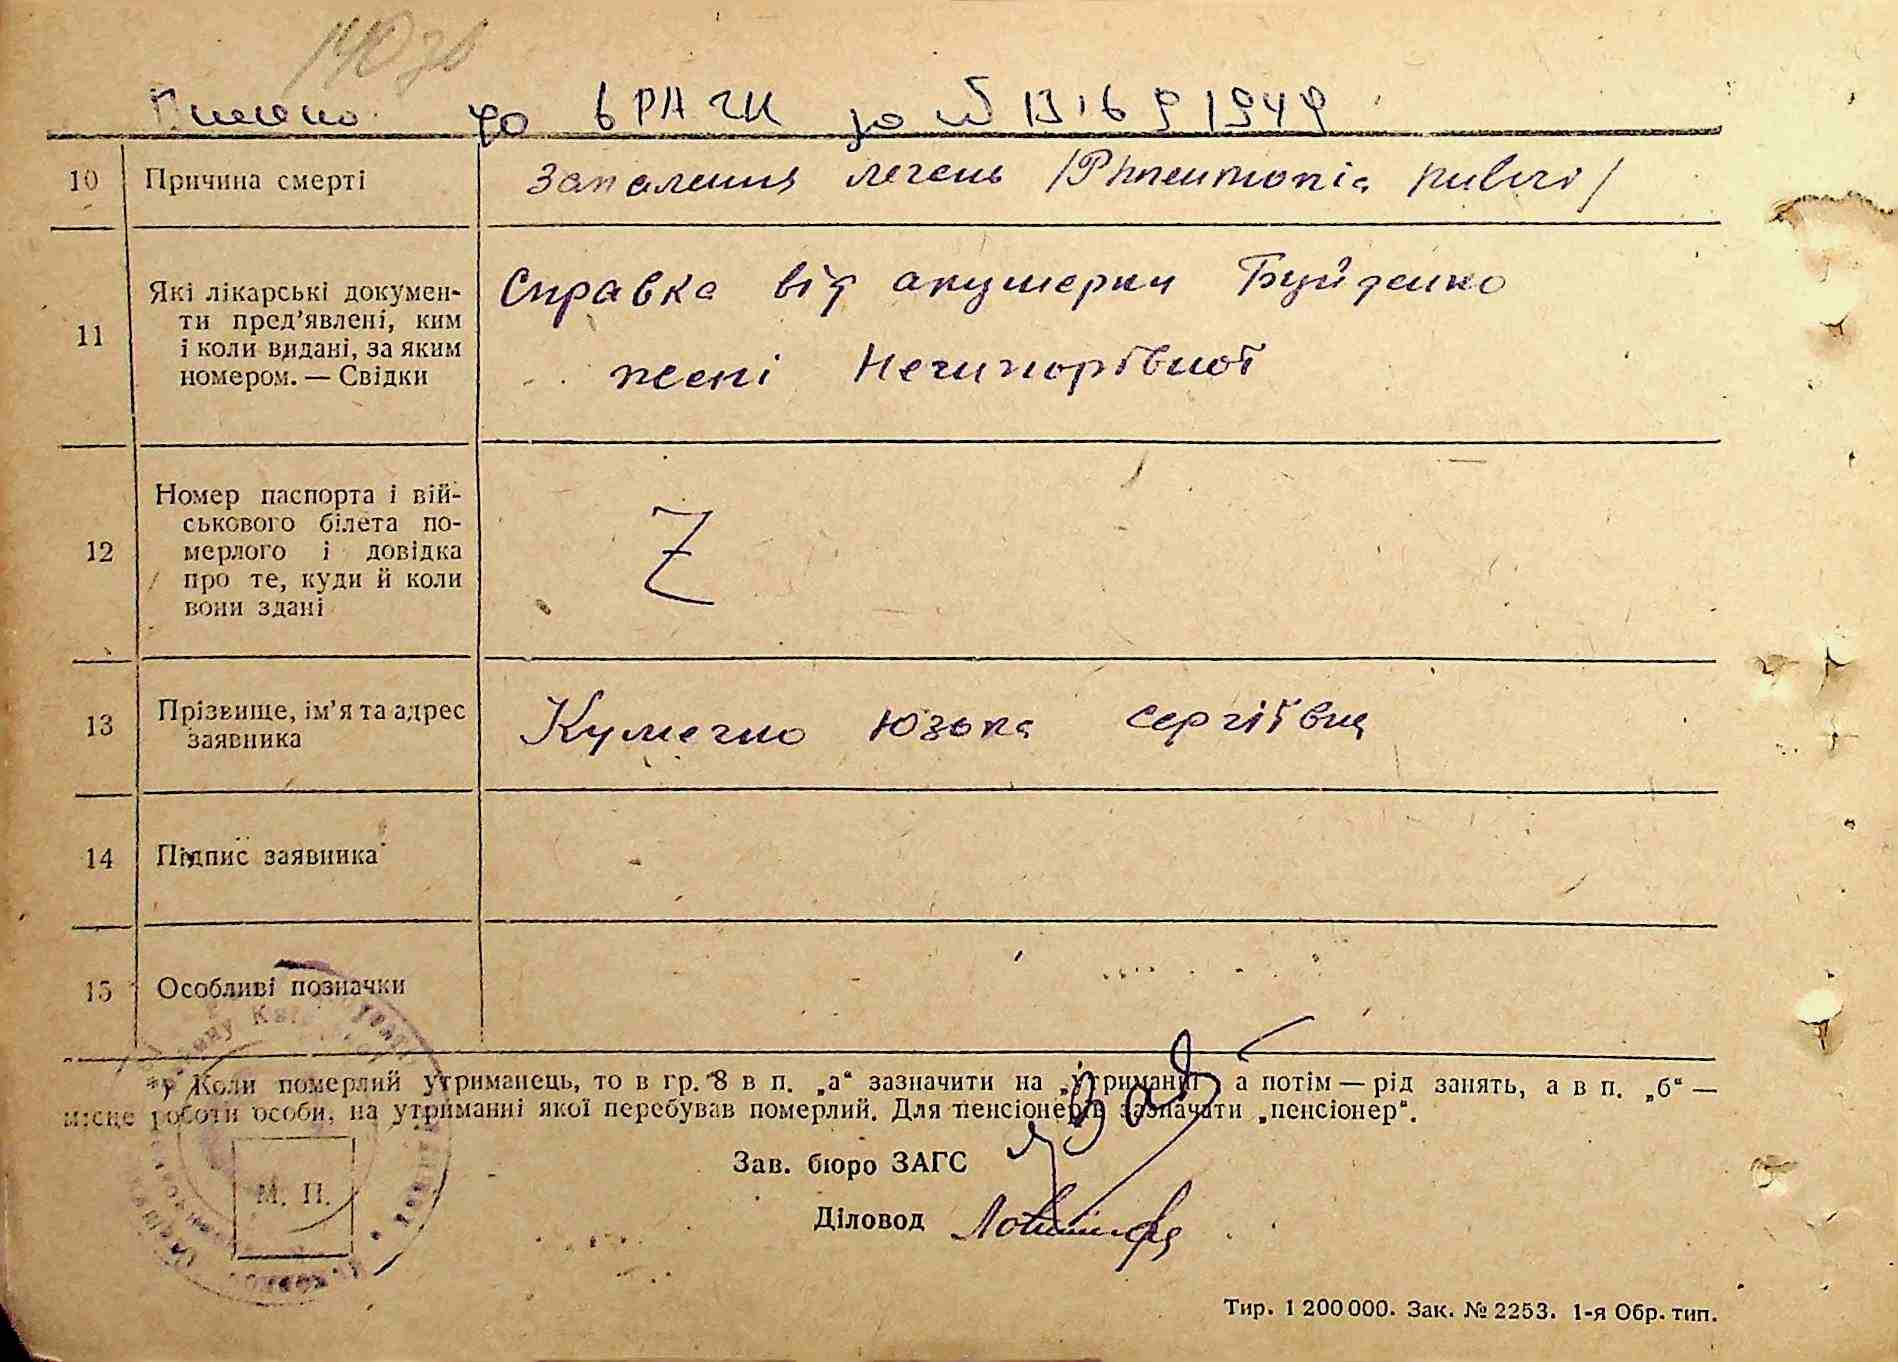 140 зв
до 1949
10 Причина смерті Запалення легень /Phneumonia
11 Які лікарські докумен-
ти пред'явлені, ким
і коли видані, за яким
номером. — Свідки
Справка від акушерки Буйденко
Нечипорівної
12 Номер паспорта і вій-
ськового білета по-
мерлого і довідка
про те, куди й коли
вони здані
Z
13 Прізвище, ім'я та адрес
заявника
Кумечко Юзька Сергіївна
14 Підпис заявника
15 Особливі позначки
*) Коли померлий утриманець, то в гр. 8 в п. „а“ зазначити на „утриманні а потім — рід занять, а в п. „б“ —
місце роботи особи, на утриманні якої перебував померлий. Для пенсіонерів зазначати „пенсіонер“.
Зав. бюро ЗАГС
М. П.
Діловод
Тир. 1 200 000. Зак. № 2253. 1-я Обр. тип.